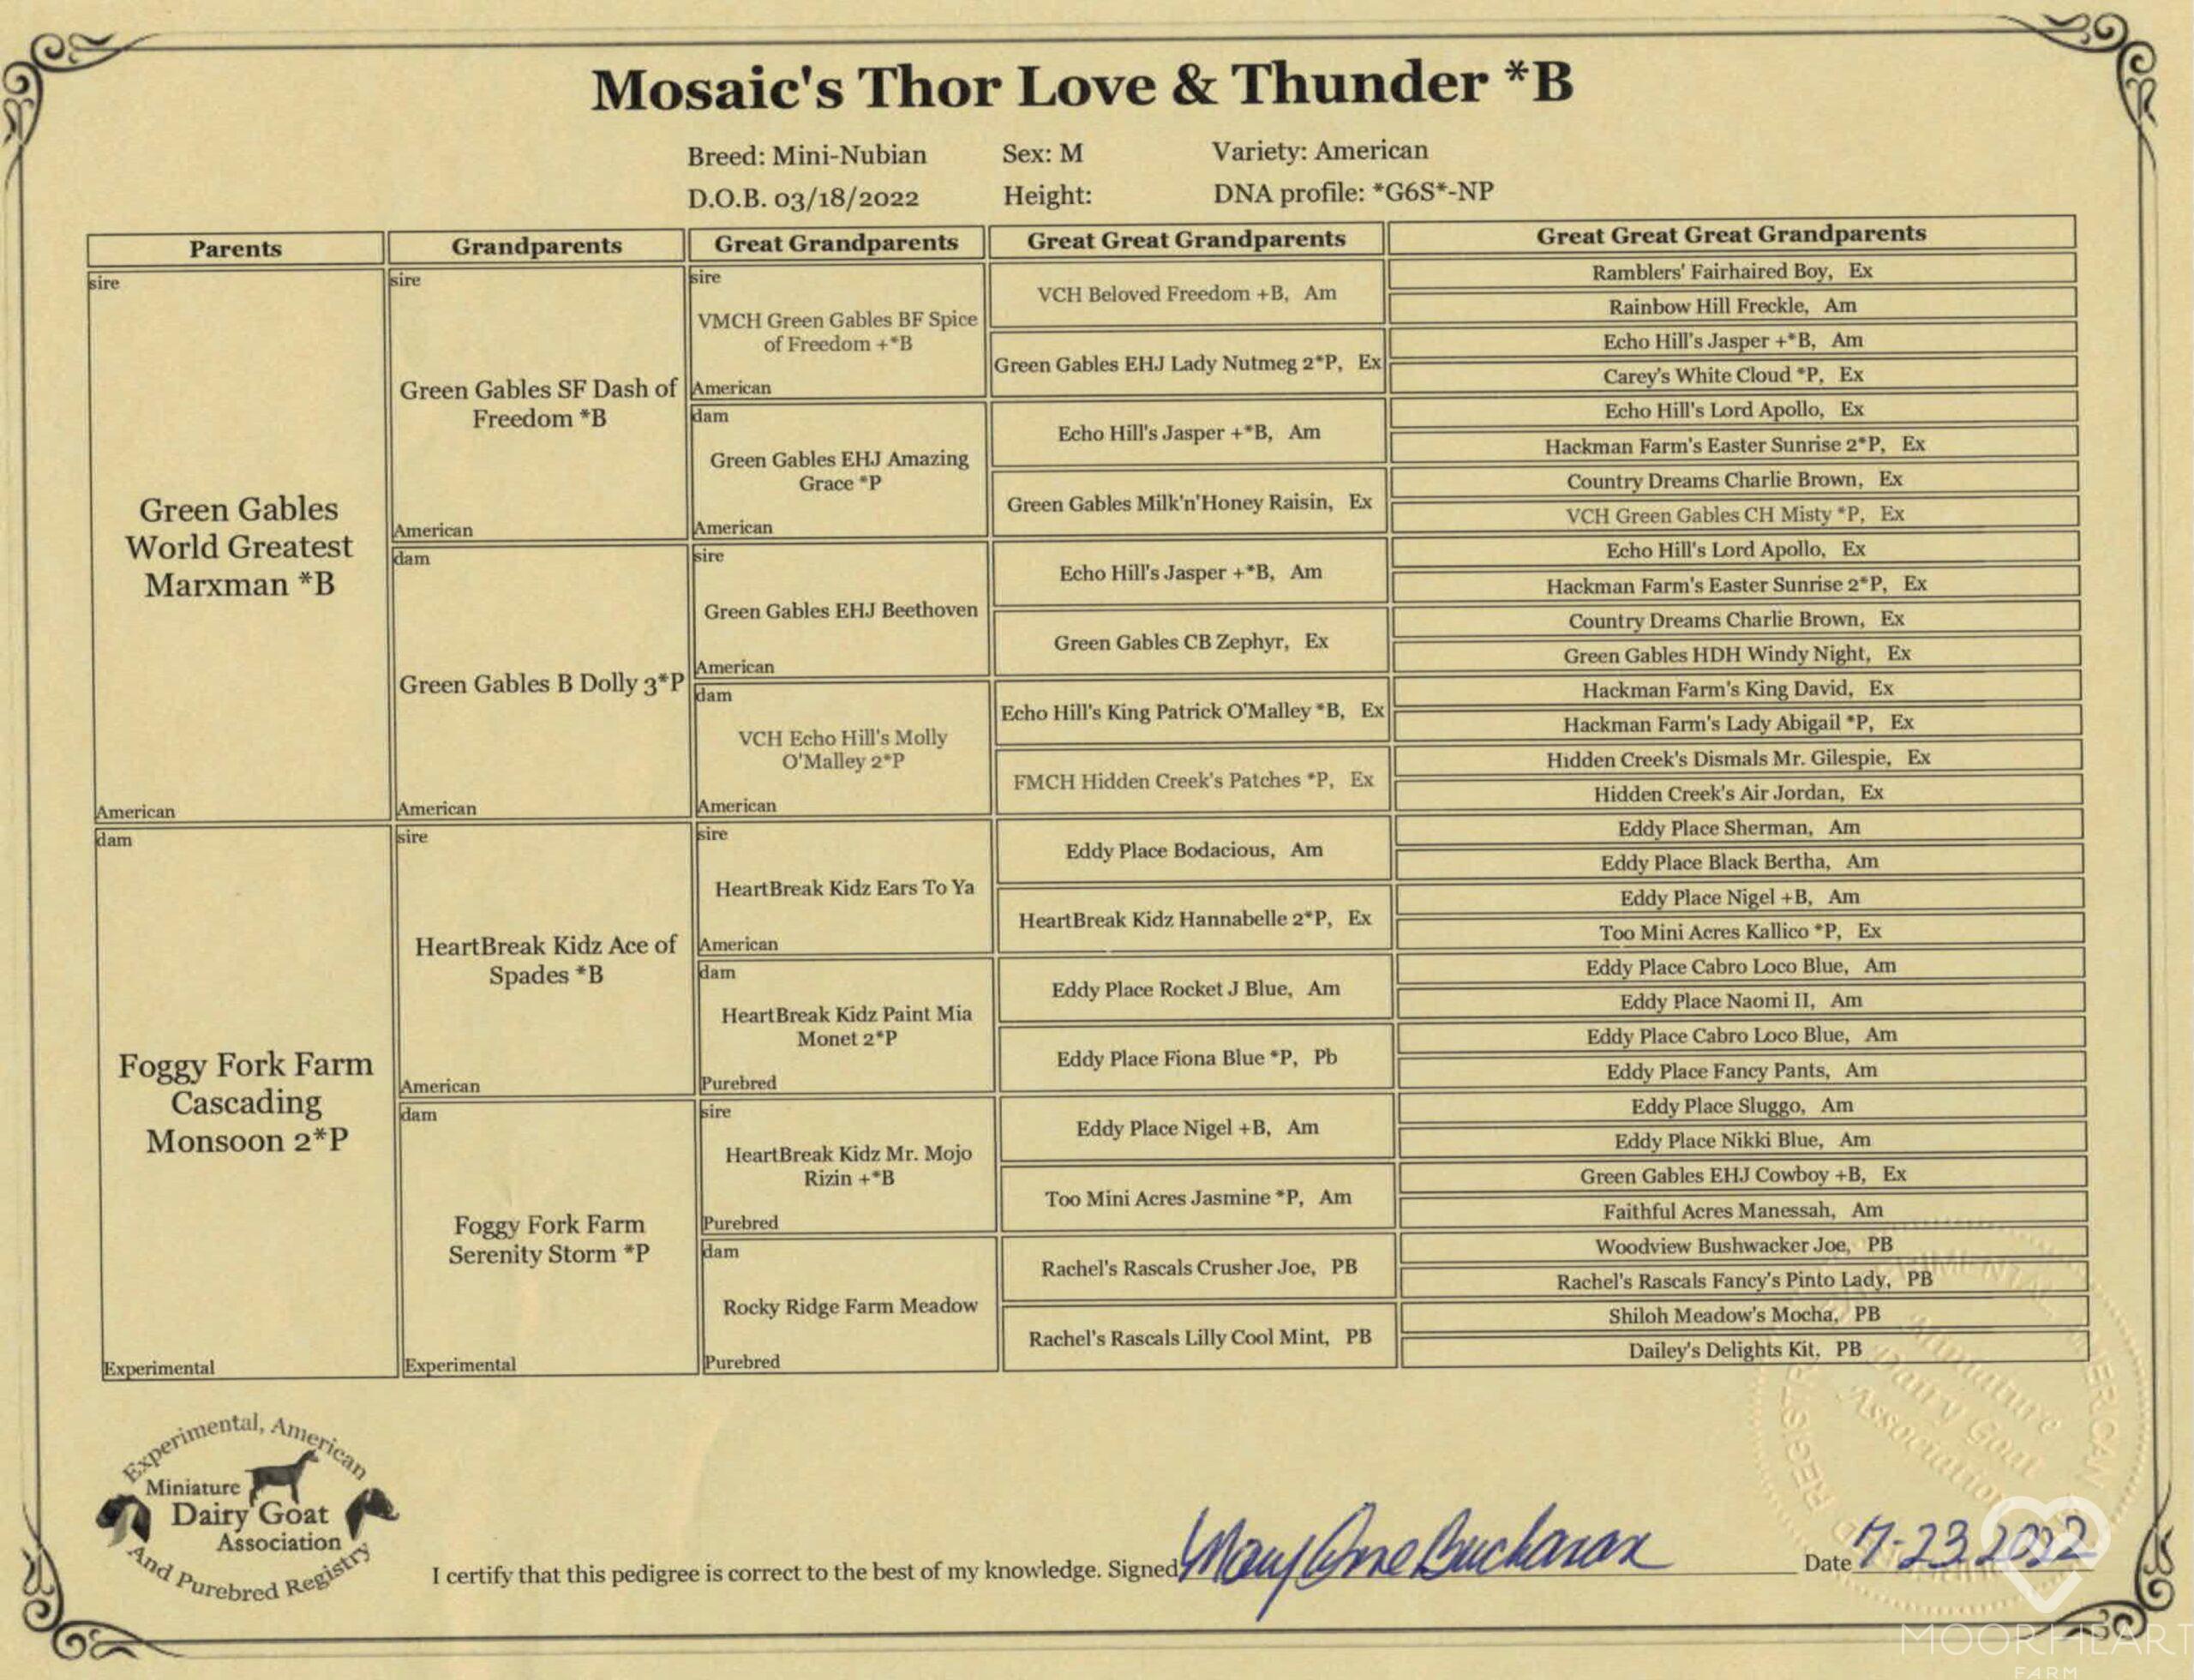 Mosaic's Thor Love & Thunder *B
Breed: Mini-Nubian Sex: M Variety: American
D.O.B. 03/18/2022 Height: DNA profile: *G6S*-NP
Parents Grandparents Great Grandparents Great Great Grandparents Great Great Great Grandparents
sire
Green Gables
World Greatest
Marxman *B
American
dam
Foggy Fork Farm
Cascading
Monsoon 2*P
Experimental
sire
Green Gables SF Dash of
Freedom *B
American
dam
Green Gables B Dolly 3*P
American
sire
HeartBreak Kidz Ace of
Spades *B
American
dam
Foggy Fork Farm
Serenity Storm *P
Experimental
sire
VMCH Green Gables BF Spice
of Freedom +*B
American
dam
Green Gables EHJ Amazing
Grace *P
American
sire
Green Gables EHJ Beethoven
American
dam
VCH Echo Hill's Molly
O'Malley 2*P
American
sire
HeartBreak Kidz Ears To Ya
American
dam
HeartBreak Kidz Paint Mia
Monet 2*P
Purebred
sire
HeartBreak Kidz Mr. Mojo
Rizin +*B
Purebred
dam
Rocky Ridge Farm Meadow
Purebred
VCH Beloved Freedom +B, Am
Green Gables EHJ Lady Nutmeg 2*P, Ex
Echo Hill's Jasper +*B, Am
Green Gables Milk'n'Honey Raisin, Ex
Echo Hill's Jasper +*B, Am
Green Gables CB Zephyr, Ex
Echo Hill's King Patrick O'Malley *B, Ex
FMCH Hidden Creek's Patches *P, Ex
Eddy Place Bodacious, Am
HeartBreak Kidz Hannabelle 2*P, Ex
Eddy Place Rocket J Blue, Am
Eddy Place Fiona Blue *P, Pb
Eddy Place Nigel +B, Am
Too Mini Acres Jasmine *P, Am
Rachel's Rascals Crusher Joe, PB
Rachel's Rascals Lilly Cool Mint, PB
Ramblers' Fairhaired Boy, Ex
Rainbow Hill Freckle, Am
Echo Hill's Jasper +*B, Am
Carey's White Cloud *P, Ex
Echo Hill's Lord Apollo, Ex
Hackman Farm's Easter Sunrise 2*P, Ex
Country Dreams Charlie Brown, Ex
VCH Green Gables CH Misty *P, Ex
Echo Hill's Lord Apollo, Ex
Hackman Farm's Easter Sunrise 2*P, Ex
Country Dreams Charlie Brown, Ex
Green Gables HDH Windy Night, Ex
Hackman Farm's King David, Ex
Hackman Farm's Lady Abigail *P, Ex
Hidden Creek's Dismals Mr. Gilespie, Ex
Hidden Creek's Air Jordan, Ex
Eddy Place Sherman, Am
Eddy Place Black Bertha, Am
Eddy Place Nigel +B, Am
Too Mini Acres Kallico *P, Ex
Eddy Place Cabro Loco Blue, Am
Eddy Place Naomi II, Am
Eddy Place Cabro Loco Blue, Am
Eddy Place Fancy Pants, Am
Eddy Place Sluggo, Am
Eddy Place Nikki Blue, Am
Green Gables EHJ Cowboy +B, Ex
Faithful Acres Manessah, Am
Woodview Bushwacker Joe, PB
Rachel's Rascals Fancy's Pinto Lady, PB
Shiloh Meadow's Mocha, PB
Dailey's Delights Kit, PB
Experimental, American
Miniature
Dairy Goat
Association
And Purebred Registry
Miniature
Dairy Goat
Association
I certify that this pedigree is correct to the best of my knowledge. Signed Mary Anne Buchanan Date 7-23 2022
MOORHEART
FARM